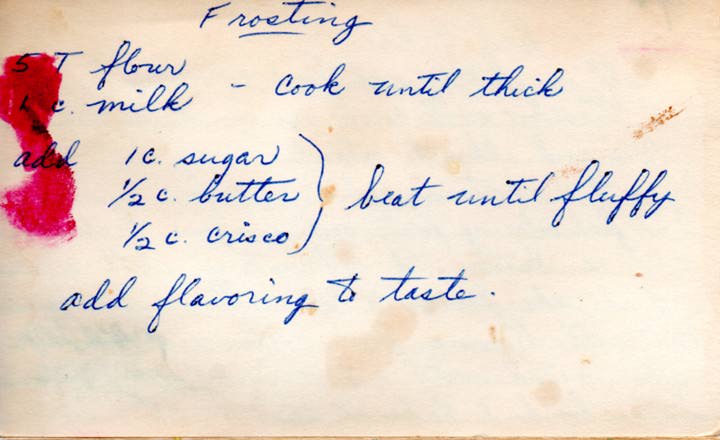 Frosting
5 T flour
1 c. milk - cook until thick
add 1 c. sugar
1/2 c. butter } beat until fluffy
1/2 c. crisco
add flavoring to taste.